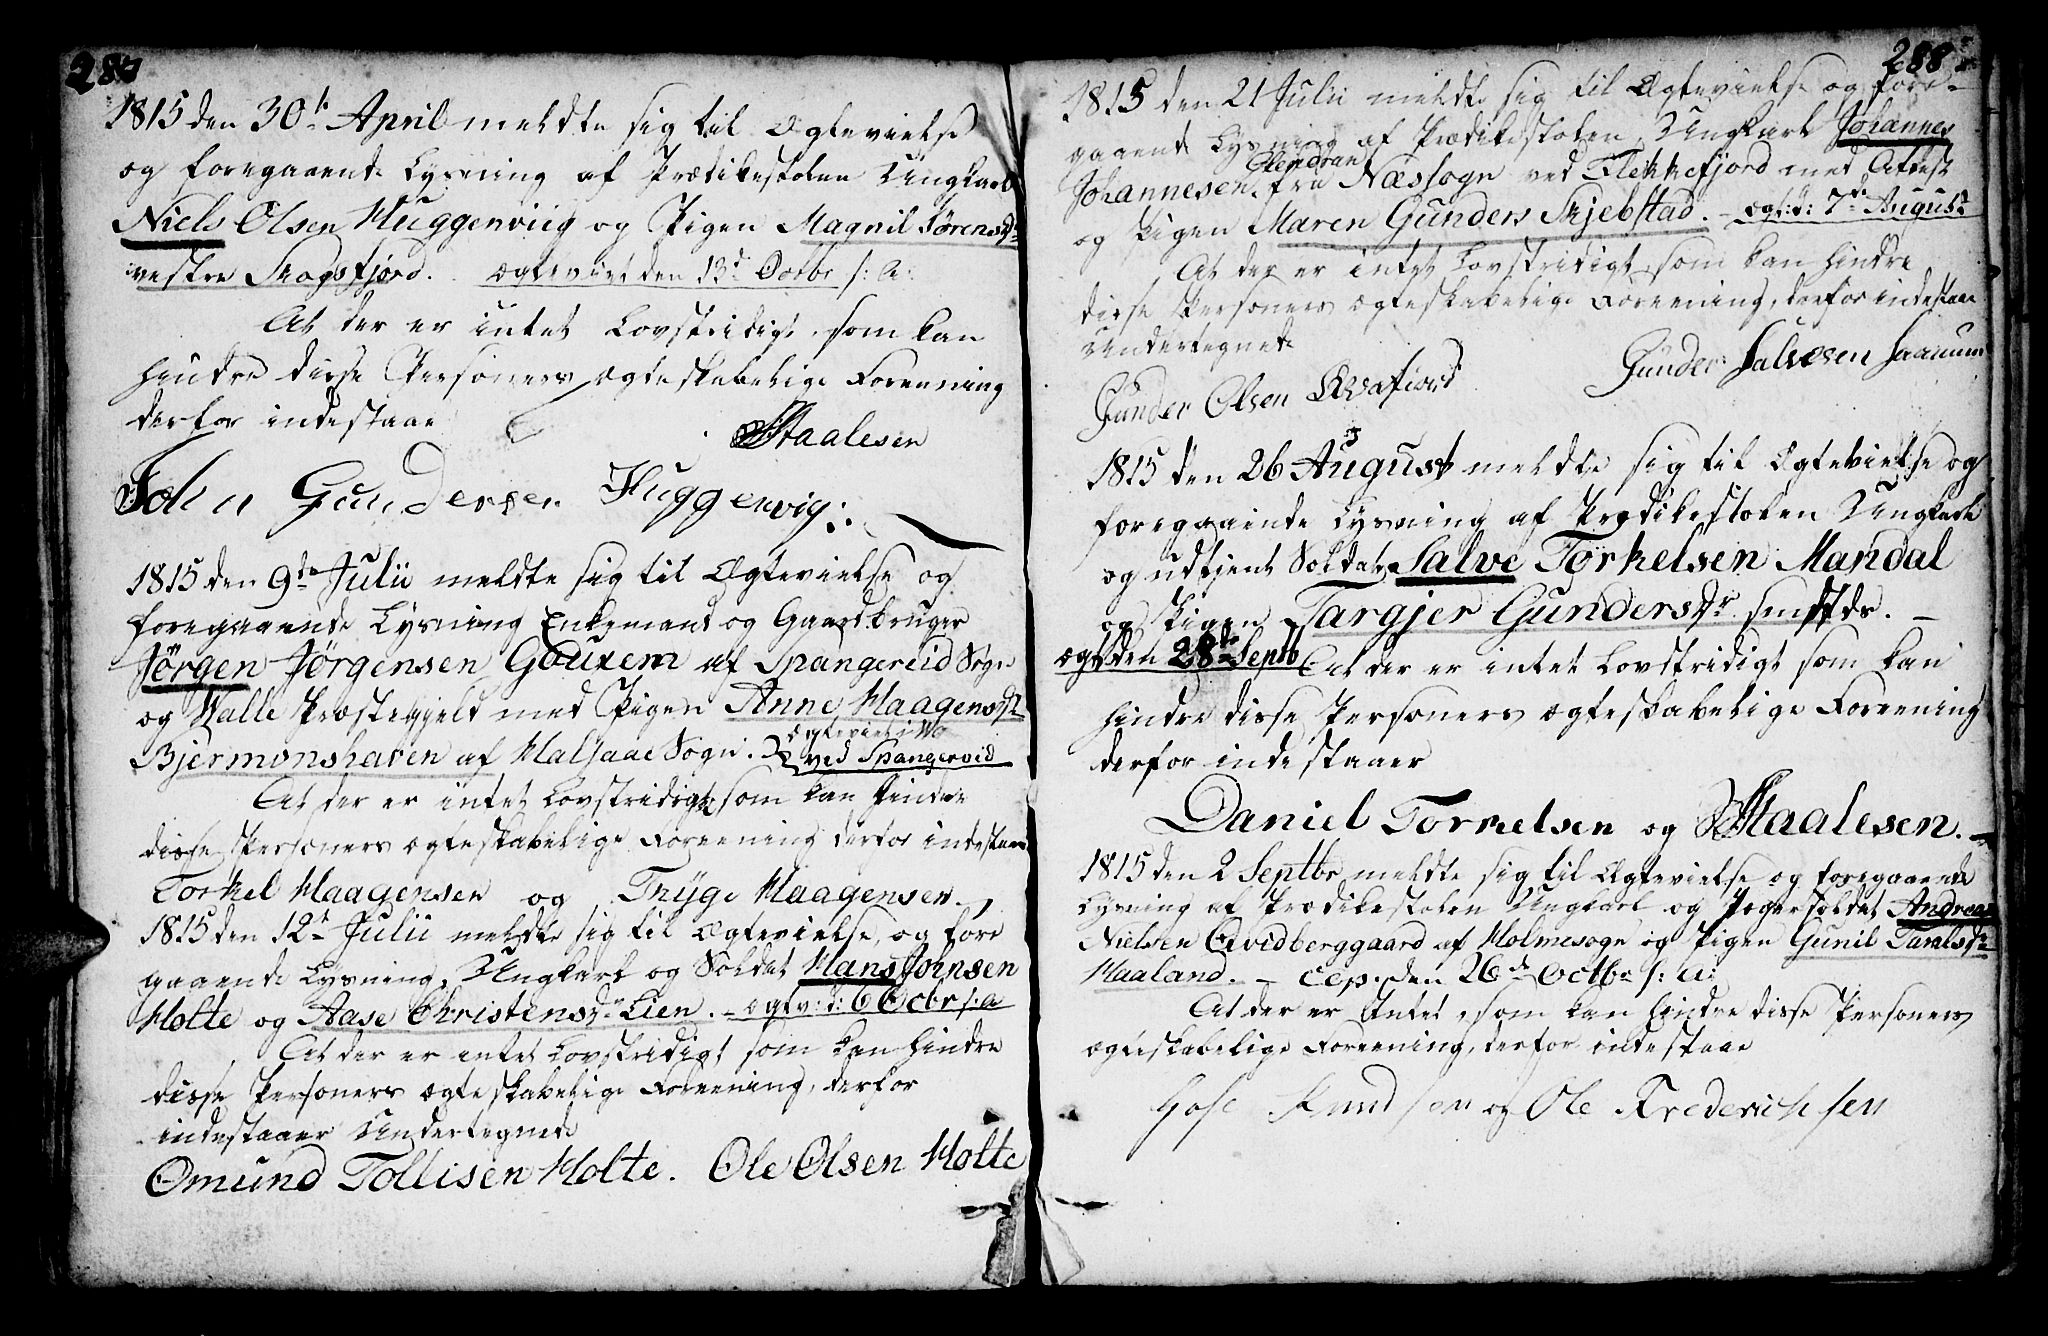 287
1815 den 30t April meldte sig til Ægtevielse
og foregaaende Lysning af Prædikestolen Ungkarl
Niels Olsen Huggenviig og Pigen Magnil Sørensdr
vestre Skogsfjord. ægteviet den 13d Octbr s: A:
At der er intet Lovstridigt, som kan
hindre disse Personers ægteskabelige Foreening
derfor indestaae
Staalesen
John Gundersen Huggenvig:
1815 den 9de Julii meldte sig til Ægtevielse og
foregaaende Lysning Enkemand og Gaardbruger
Jørgen Jørgensen Gouxem af Spangereid Sogn
og Walle Præstegjeld med Pigen Anne Haagensdr
Bjermonshaven af Halsaae Sogn. ægteviet
ved Spangereid
At der er intet Lovstridigt som kan hindre
disse Personers ægteskabelige Foreening derfor indestaae
Torkel Haagensen og Tryge Haagensen.
1815 den 12t Julii meldte sig til Ægtevielse, og fore
gaaende Lysning, Ungkarl og Soldat Hans Joensen
Holte og Aase Christensdr Lien. - ægtv: d: 6 Octbr s: a
At der er intet Lovstridigt som kan hindre
disse Personers ægteskabelige Foreening, derfor
indestaaer Undertegnede
Omund Tollisen Holte. Ole Olsen Holte
288
1815 den 21 Julii meldte sig til Ægtevielse og fore-
gaaende Lysning af Prædikestolen, Ungkarl Johannes
Johannesen fra Næssogn ved Flekkefjord med Attest
og Pigen Maren Gunders Skjebstad. - ægt: d: 7de August
At der er intet Lovstridigt som kan hindre
disse Personers ægteskabelige Foreening, derfor indestaae
Undertegnede
Gunder Olsen Qvafiord Gunder Salvesen Saanum
1815 den 26 August meldte sig til Ægtevielse og
foregaaende Lysning af Prædikestolen Ungkarl
og udtjent Soldat Salve Torkelsen Mandal
og Pigen Targjer Gundersdr smstds. -
ægt. den 28de Septb At der er intet Lovstridigt som kan
hindre disse Personers ægteskabelige Foreening
derfor indestaaer
Daniel Torkelsen og Staalesen. -
1815 den 2 Septbr meldte sig til Ægtevielse og foregaaende
Lysning af Prædikestolen Ungkarl og Jægersoldat Andreas
Nielsen Qvidberggaard af Holmesogn og Pigen Gunil Taralsdr
Haaland. - cop. den 26de Octbr s: a:
At der er Intet, som kan hindre disse Personers
ægteskabelige Foreening, derfor indestaae
Knudsen og Ole Frederichsen